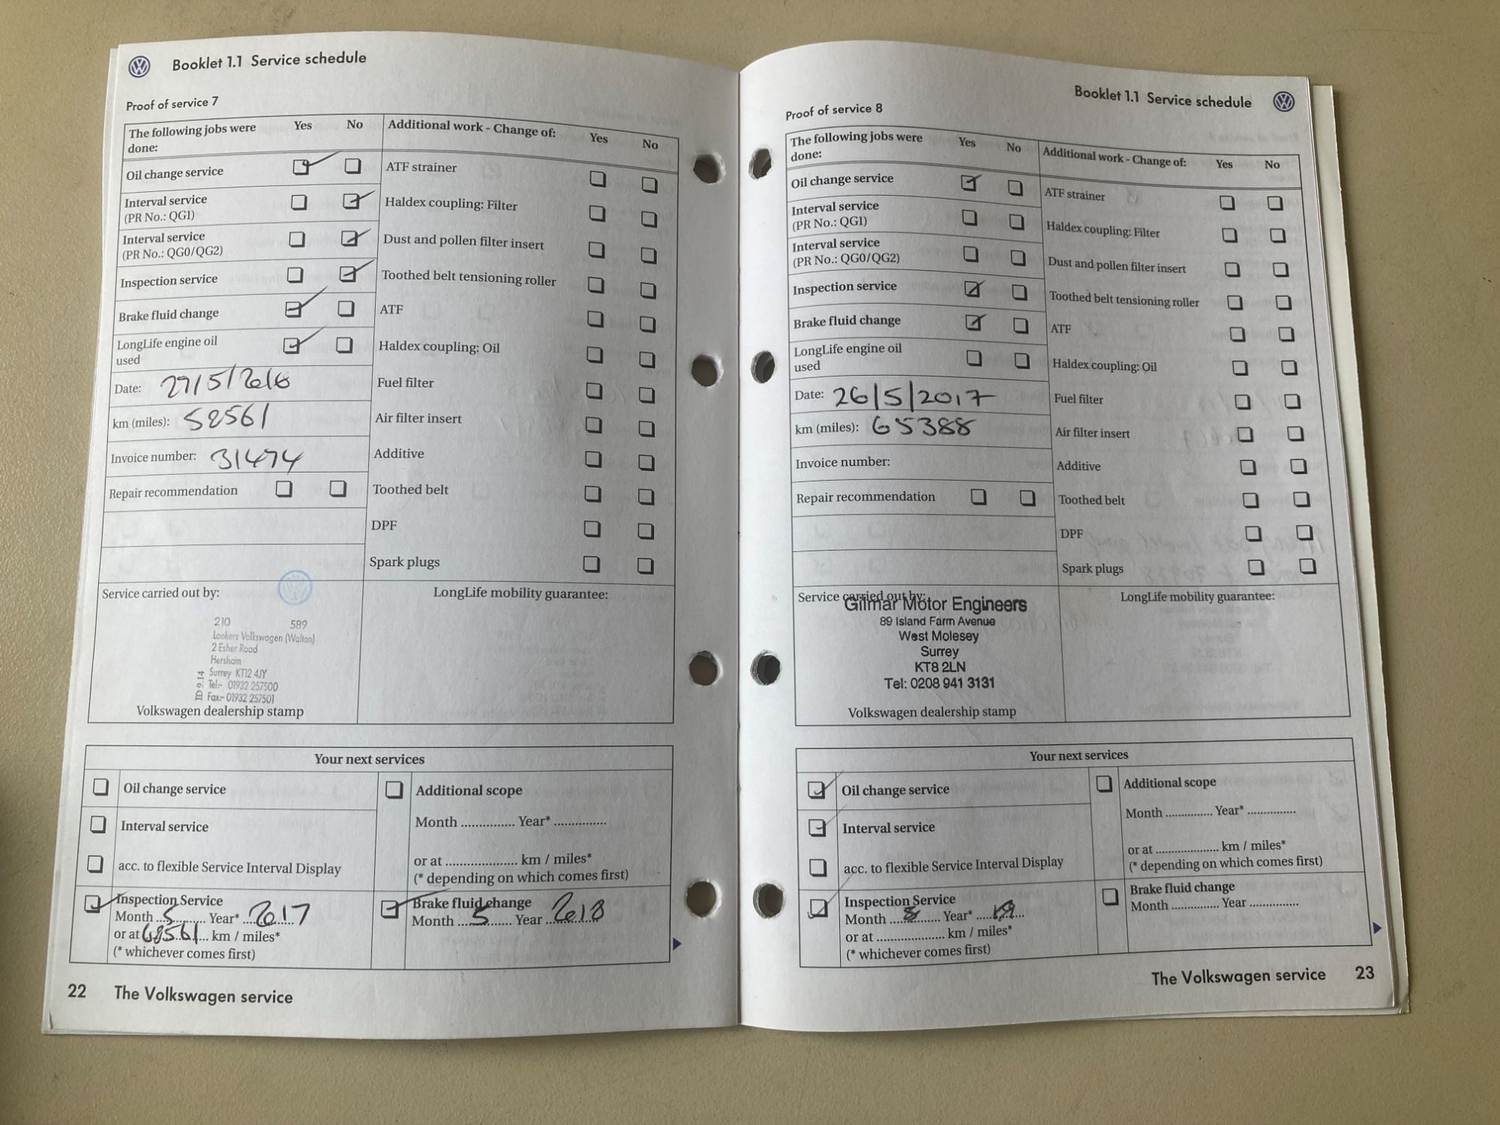 Booklet 1.1 Service schedule
Proof of service 7
The following jobs were done:
Yes No
Additional work - Change of:
Yes No
Oil change service
Interval service
(PR No.: QG1)
Interval service
(PR No.: QG0/QG2)
Inspection service
Brake fluid change
LongLife engine oil
used
Date: 27/5/2016
km (miles): 58561
Invoice number: 31474
Repair recommendation
ATF strainer
Haldex coupling: Filter
Dust and pollen filter insert
Toothed belt tensioning roller
ATF
Haldex coupling: Oil
Fuel filter
Air filter insert
Additive
Toothed belt
DPF
Spark plugs
Service carried out by:
210 589
Lookers Volkswagen (Walton)
2 Esher Road
Hersham
Surrey KT12 4JY
Tel:- 01932 257500
Fax:- 01932 257501
Volkswagen dealership stamp
LongLife mobility guarantee:
Your next services
Oil change service
Interval service
acc. to flexible Service Interval Display
Inspection Service
Month 5 Year* 2017
or at 68561 km / miles*
(* whichever comes first)
Additional scope
Month ............... Year* ...............
or at .................... km / miles*
(* depending on which comes first)
Brake fluid change
Month 5 Year 2018
22 The Volkswagen service
Booklet 1.1 Service schedule
Proof of service 8
The following jobs were done:
Yes No
Additional work - Change of:
Yes No
Oil change service
Interval service
(PR No.: QG1)
Interval service
(PR No.: QG0/QG2)
Inspection service
Brake fluid change
LongLife engine oil
used
Date: 26/5/2017
km (miles): 65388
Invoice number:
Repair recommendation
ATF strainer
Haldex coupling: Filter
Dust and pollen filter insert
Toothed belt tensioning roller
ATF
Haldex coupling: Oil
Fuel filter
Air filter insert
Additive
Toothed belt
DPF
Spark plugs
Service carried out by:
Gilmar Motor Engineers
89 Island Farm Avenue
West Molesey
Surrey
KT8 2LN
Tel: 0208 941 3131
Volkswagen dealership stamp
LongLife mobility guarantee:
Your next services
Oil change service
Interval service
acc. to flexible Service Interval Display
Inspection Service
Month Year*
or at .................... km / miles*
(* whichever comes first)
Additional scope
Month ............... Year* ...............
or at .................... km / miles*
(* depending on which comes first)
Brake fluid change
Month ............... Year ...............
The Volkswagen service 23